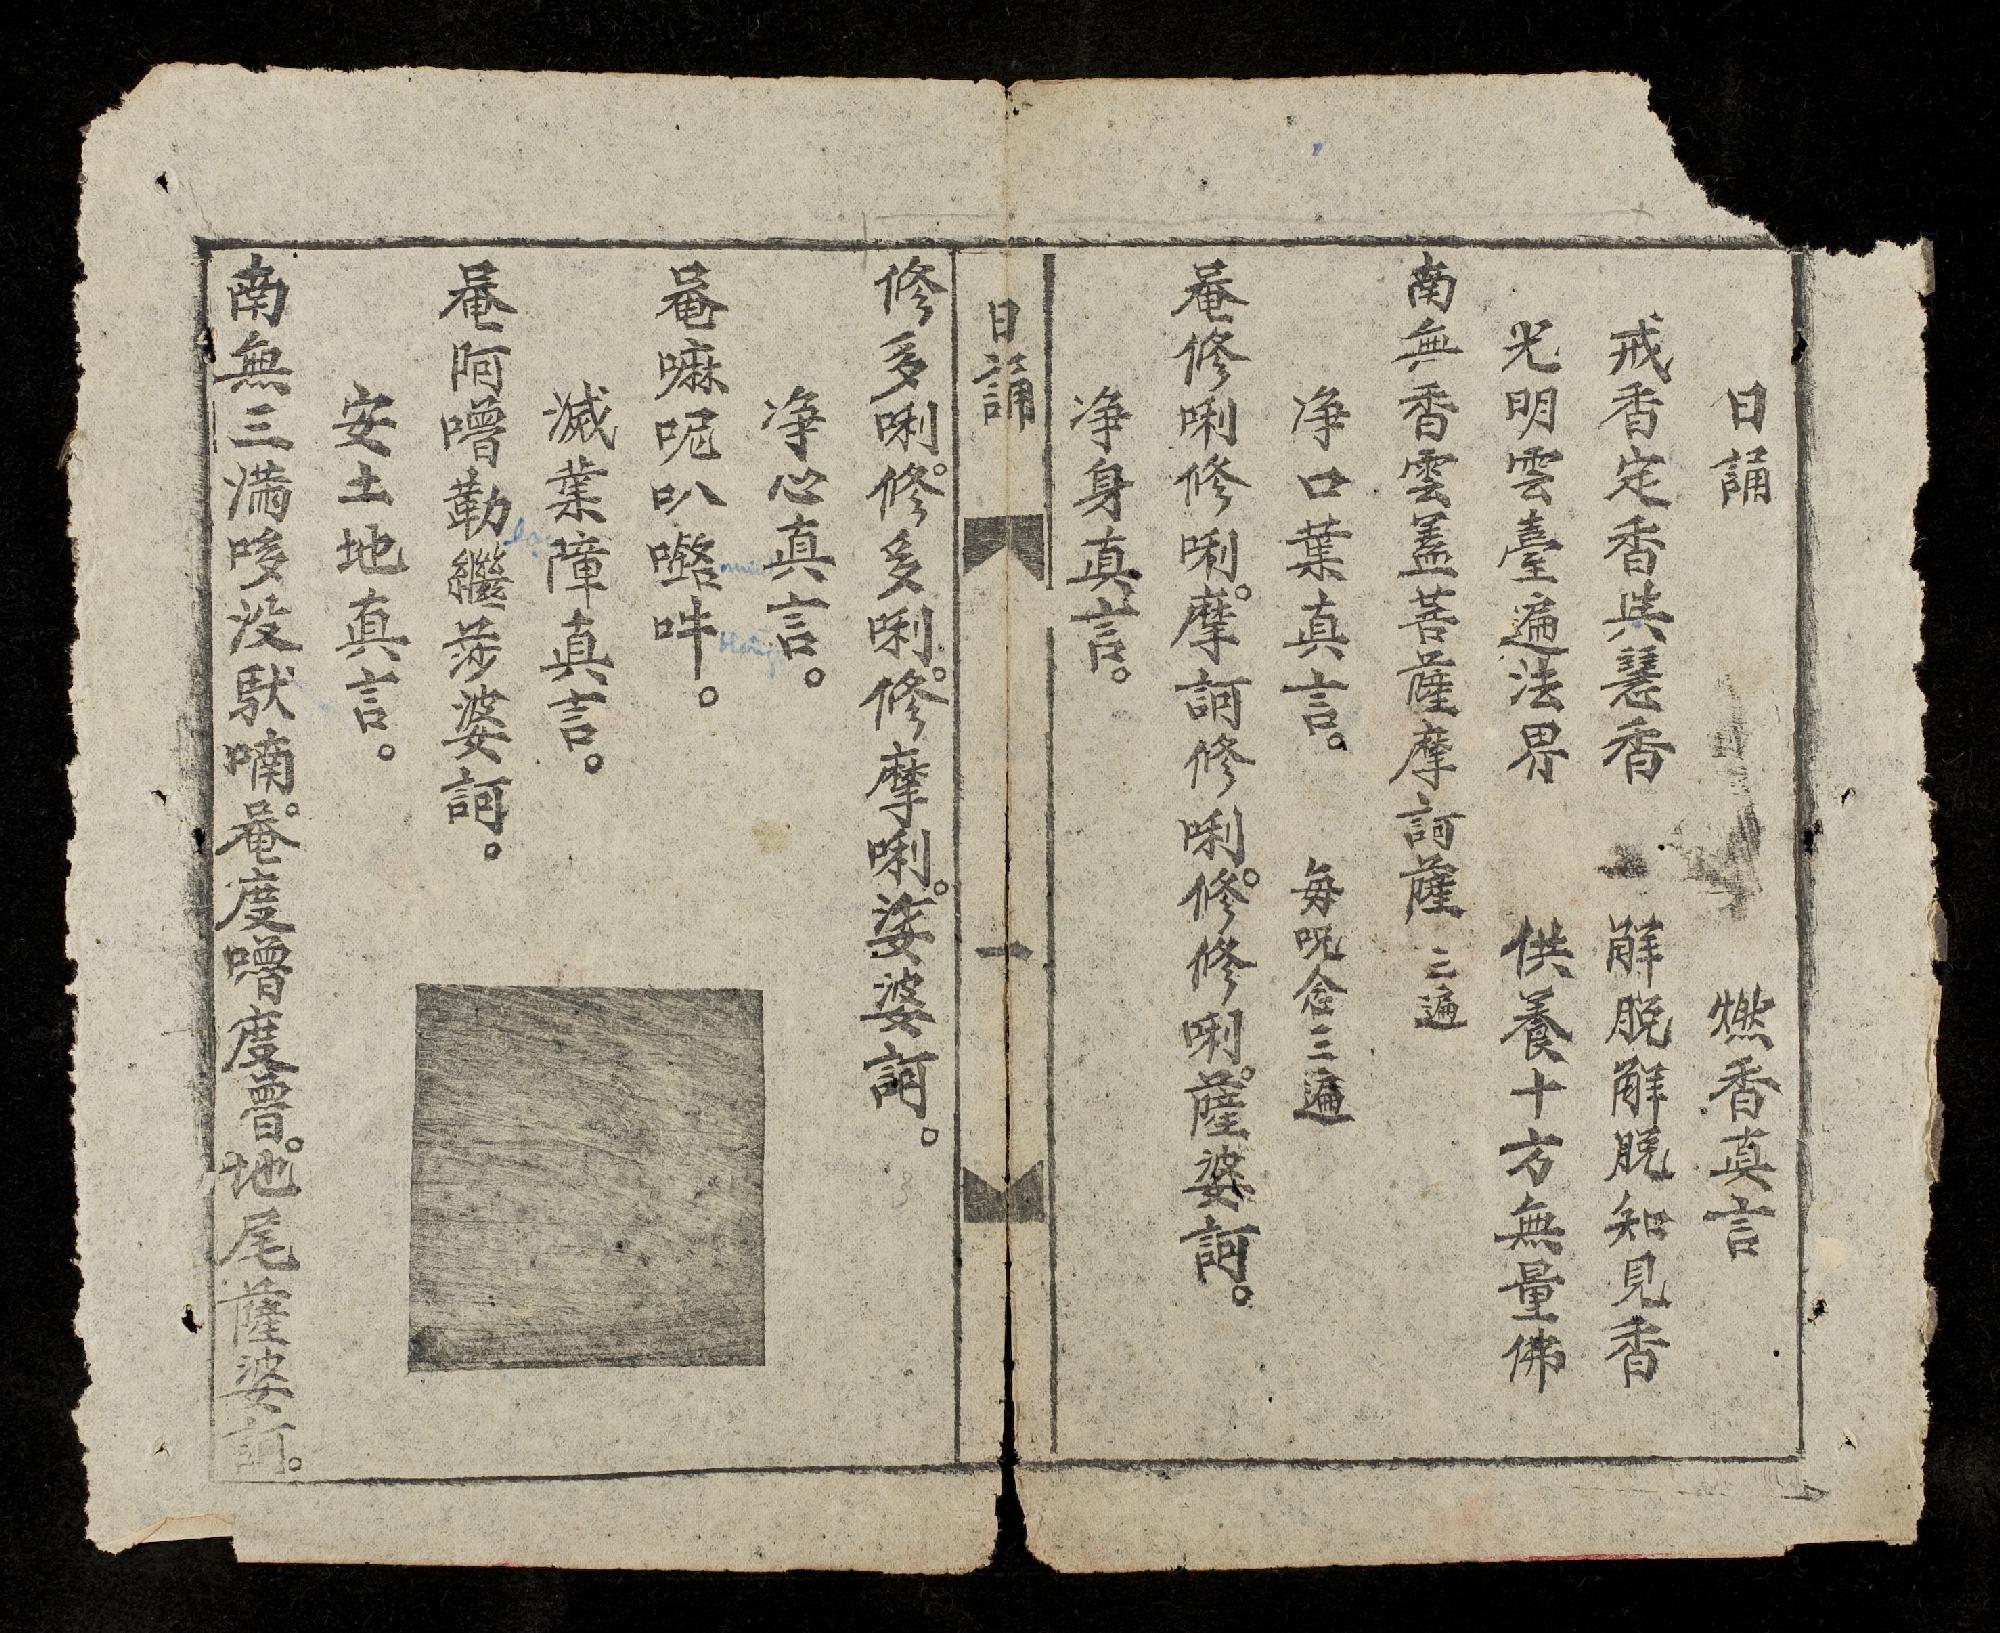 日誦 燃香真言
戒香定香與慧香 解脫解脫知見香
光明雲臺遍法界 供養十方無量佛
南無香雲蓋菩薩摩訶薩 三遍
净口業真言。 每呪念三遍
唵修唎修唎。摩訶修唎。修修唎。薩婆訶。
净身真言。
日誦 一
修多唎。修多唎。修摩唎。娑婆訶。
净心真言。
唵嘛呢叭𡄣吽。
滅業障真言。
唵阿嚕勒繼莎婆訶。
安土地真言。
南無三滿哆没馱喃。唵度嚕度嚕。地尾薩婆訶。